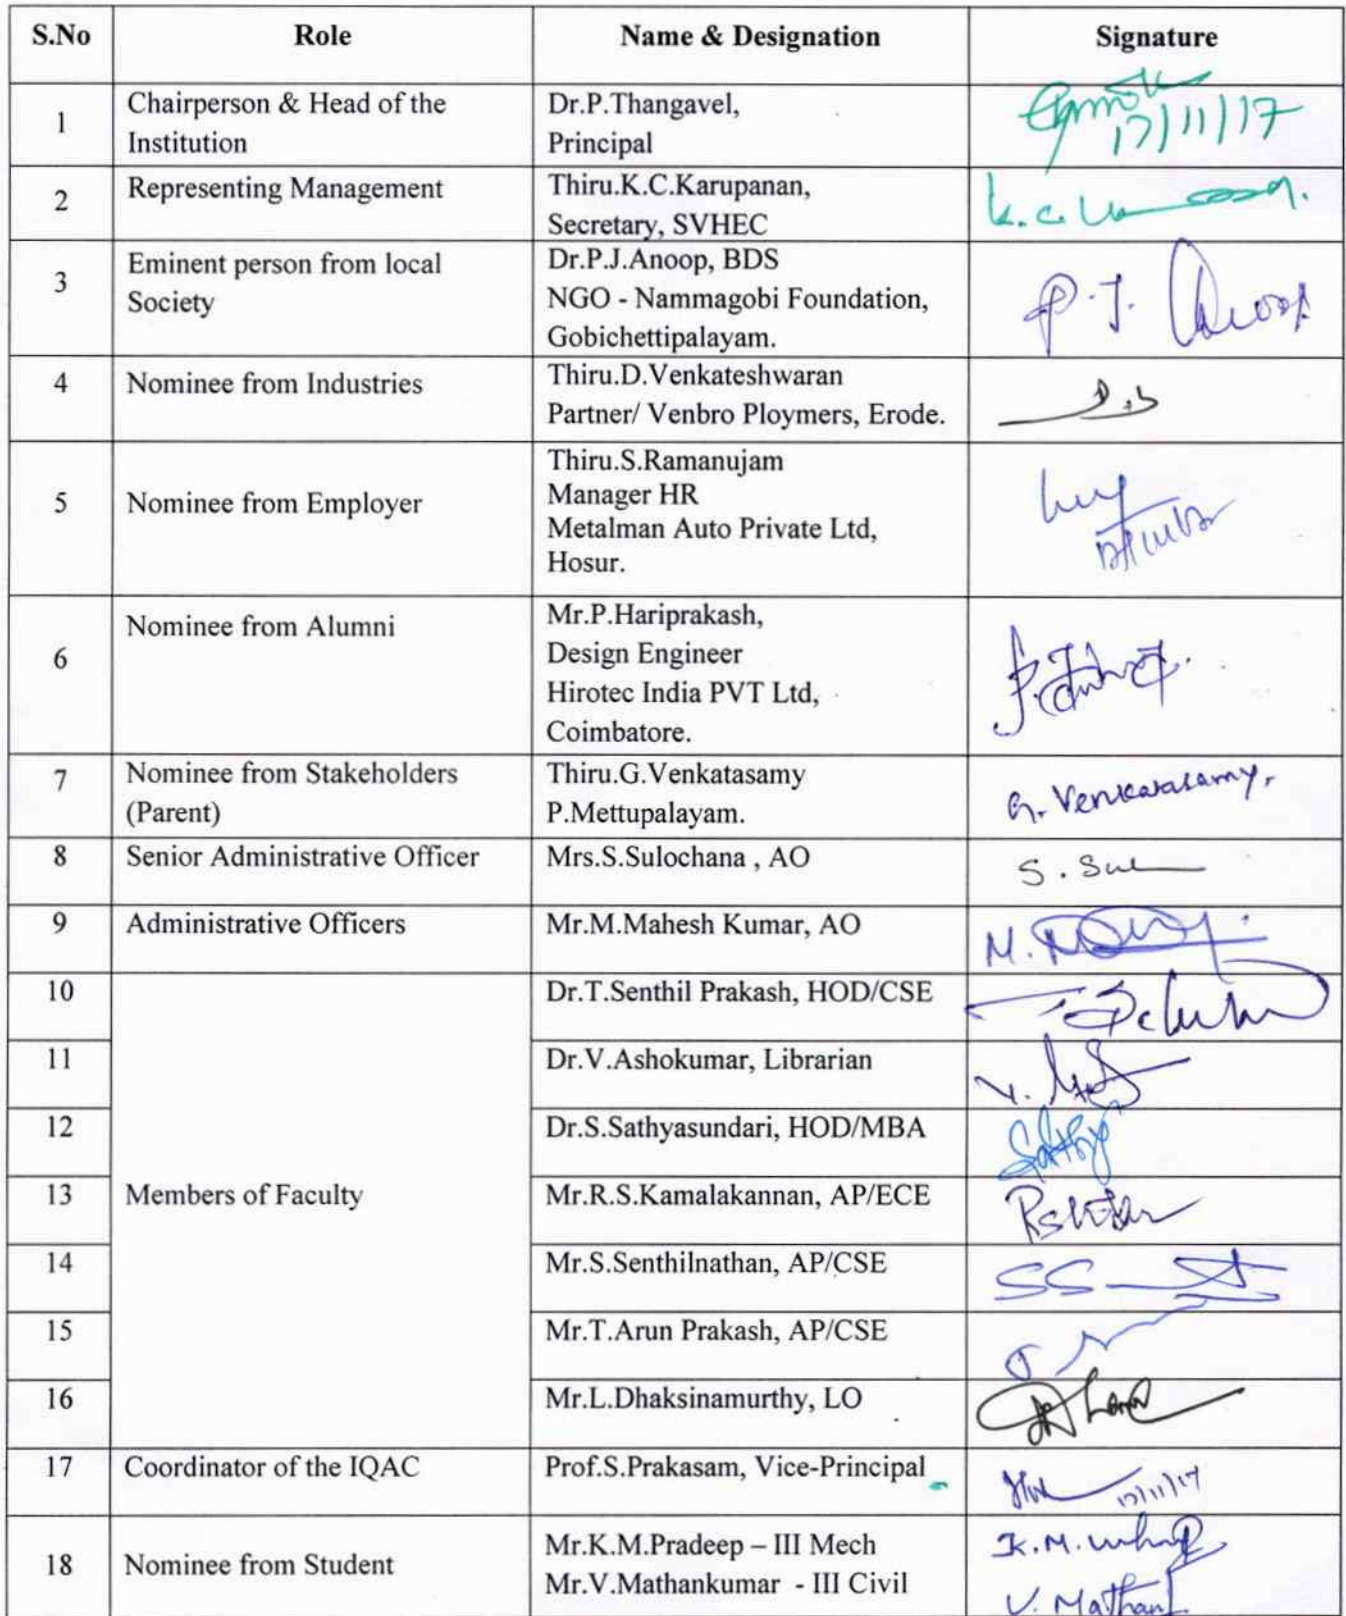 S.No Role Name & Designation Signature
1 Chairperson & Head of the Institution Dr.P.Thangavel,
Principal 17/11/17
2 Representing Management Thiru.K.C.Karupanan,
Secretary, SVHEC K.C.
3 Eminent person from local Society Dr.P.J.Anoop, BDS
NGO - Nammagobi Foundation,
Gobichettipalayam. P.J. Anoop
4 Nominee from Industries Thiru.D.Venkateshwaran
Partner/ Venbro Ploymers, Erode.
5 Nominee from Employer Thiru.S.Ramanujam
Manager HR
Metalman Auto Private Ltd,
Hosur.
6 Nominee from Alumni Mr.P.Hariprakash,
Design Engineer
Hirotec India PVT Ltd,
Coimbatore.
7 Nominee from Stakeholders (Parent) Thiru.G.Venkatasamy
P.Mettupalayam. G. Venkatasamy.
8 Senior Administrative Officer Mrs.S.Sulochana , AO S. Sul
9 Administrative Officers Mr.M.Mahesh Kumar, AO M.
10 Dr.T.Senthil Prakash, HOD/CSE
11 Dr.V.Ashokumar, Librarian V.
12 Dr.S.Sathyasundari, HOD/MBA Sathya
13 Members of Faculty Mr.R.S.Kamalakannan, AP/ECE
14 Mr.S.Senthilnathan, AP/CSE SS
15 Mr.T.Arun Prakash, AP/CSE
16 Mr.L.Dhaksinamurthy, LO
17 Coordinator of the IQAC Prof.S.Prakasam, Vice-Principal 17/11/17
18 Nominee from Student Mr.K.M.Pradeep – III Mech K.M.
Mr.V.Mathankumar - III Civil V. Mathan